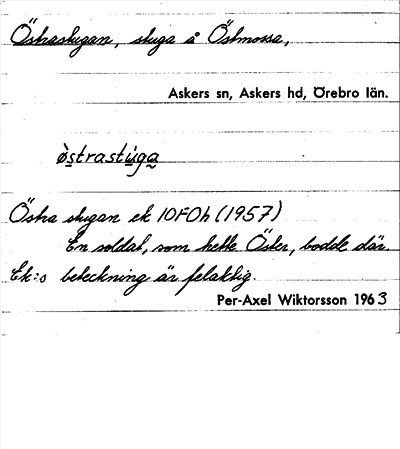 Östrastugan, stuga å Östmossa,
Askers sn, Askers hd, Örebro län.
ò̤strastu̲ga̲
Östra stugan ek 10F0h (1957)
En soldat, som hette Öster, bodde där.
Ek:s beteckning är felaktig.
Per-Axel Wiktorsson 1963